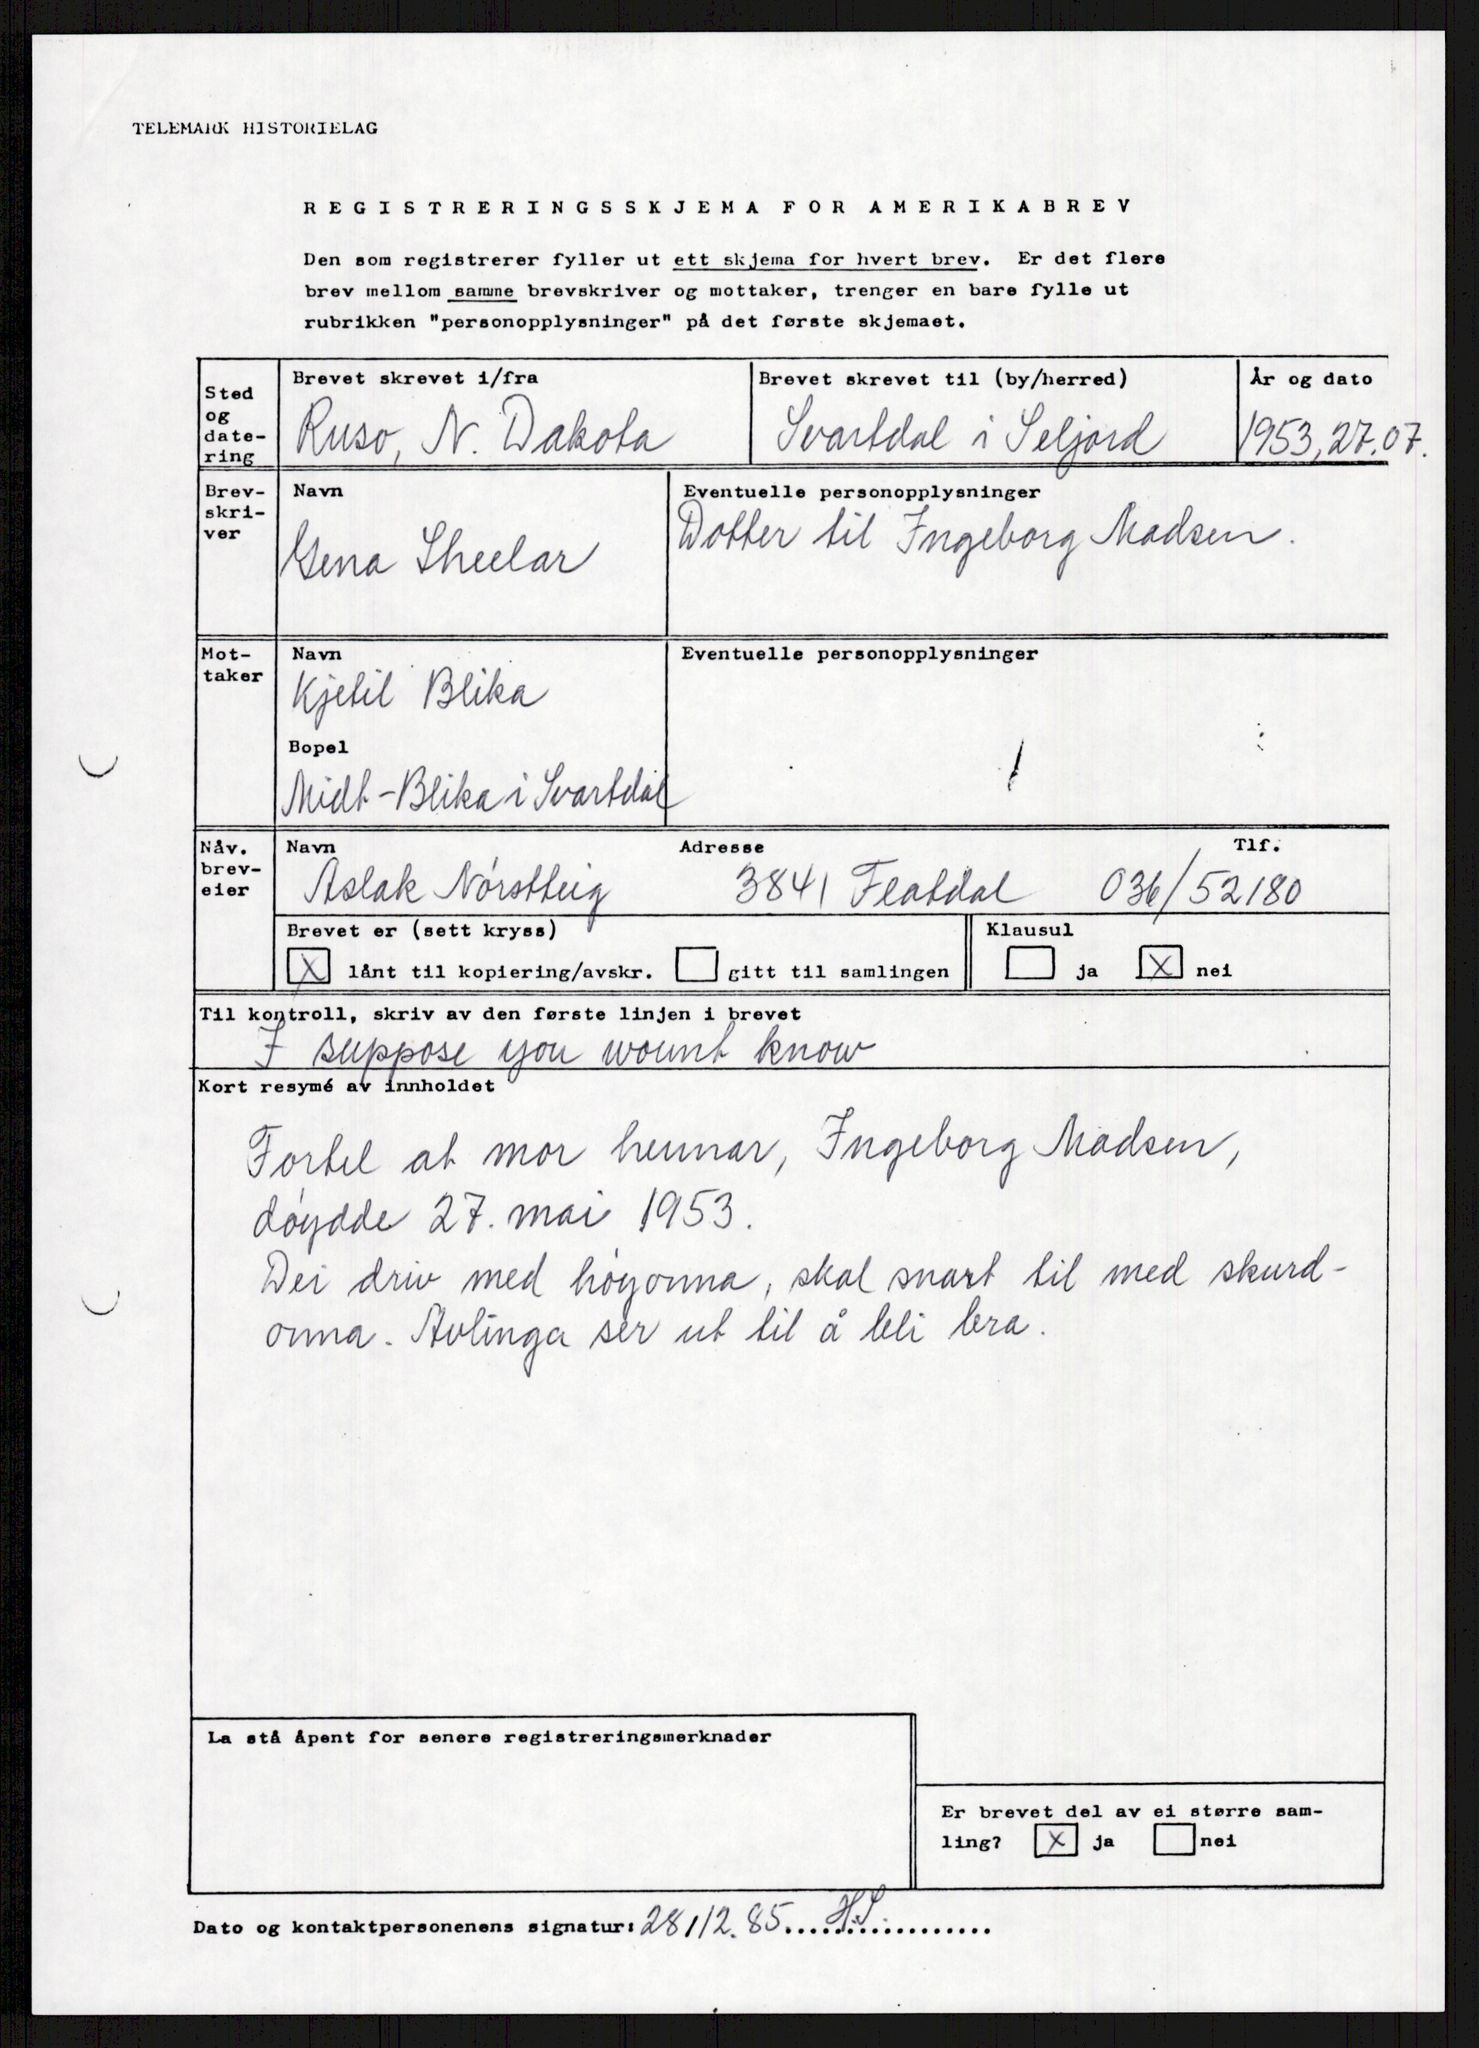 TELEMARK HISTORIELAG
REGISTRERINGSSKJEMA FOR AMERIKABREV
Den som registrerer fyller ut ett skjema for hvert brev. Er det flere
brev mellom samme brevskriver og mottaker, trenger en bare fylle ut
rubrikken "personopplysninger" på det første skjemaet.
Sted
og
date-
ring
Brevet skrevet i/fra
Ruso, N. Dakota
Brevet skrevet til (by/herred)
Svartdal i Seljord
År og dato
1953, 27.07.
Brev-
skri-
ver
Navn
Gena Sheelar
Eventuelle personopplysninger
Dotter til Ingeborg Madsen.
Mot-
taker
Navn
Kjetil Blika
Bopel
Midt-Blika i Svartdal
Eventuelle personopplysninger
Nåv.
brev-
eier
Navn
Aslak Nórstteig
Adresse
3841 Flatdal
Tlf.
036/52180
Brevet er (sett kryss)
X lånt til kopiering/avskr.
gitt til samlingen
Klausul
ja X nei
Til kontroll, skriv av den første linjen i brevet
I suppose you wount know
Kort resymé av innholdet
Fortel at mor hennar, Ingeborg Madsen,
dóydde 27. mai 1953.
Dei driv med hóyonna, skal snart til med skurd-
onna. Avlinga ser ut til å bli bra.
La stå åpent for senere registreringsmerknader
Er brevet del av ei større sam-
ling? X ja nei
Dato og kontaktpersonenens signatur: 28/12.85. H.S.